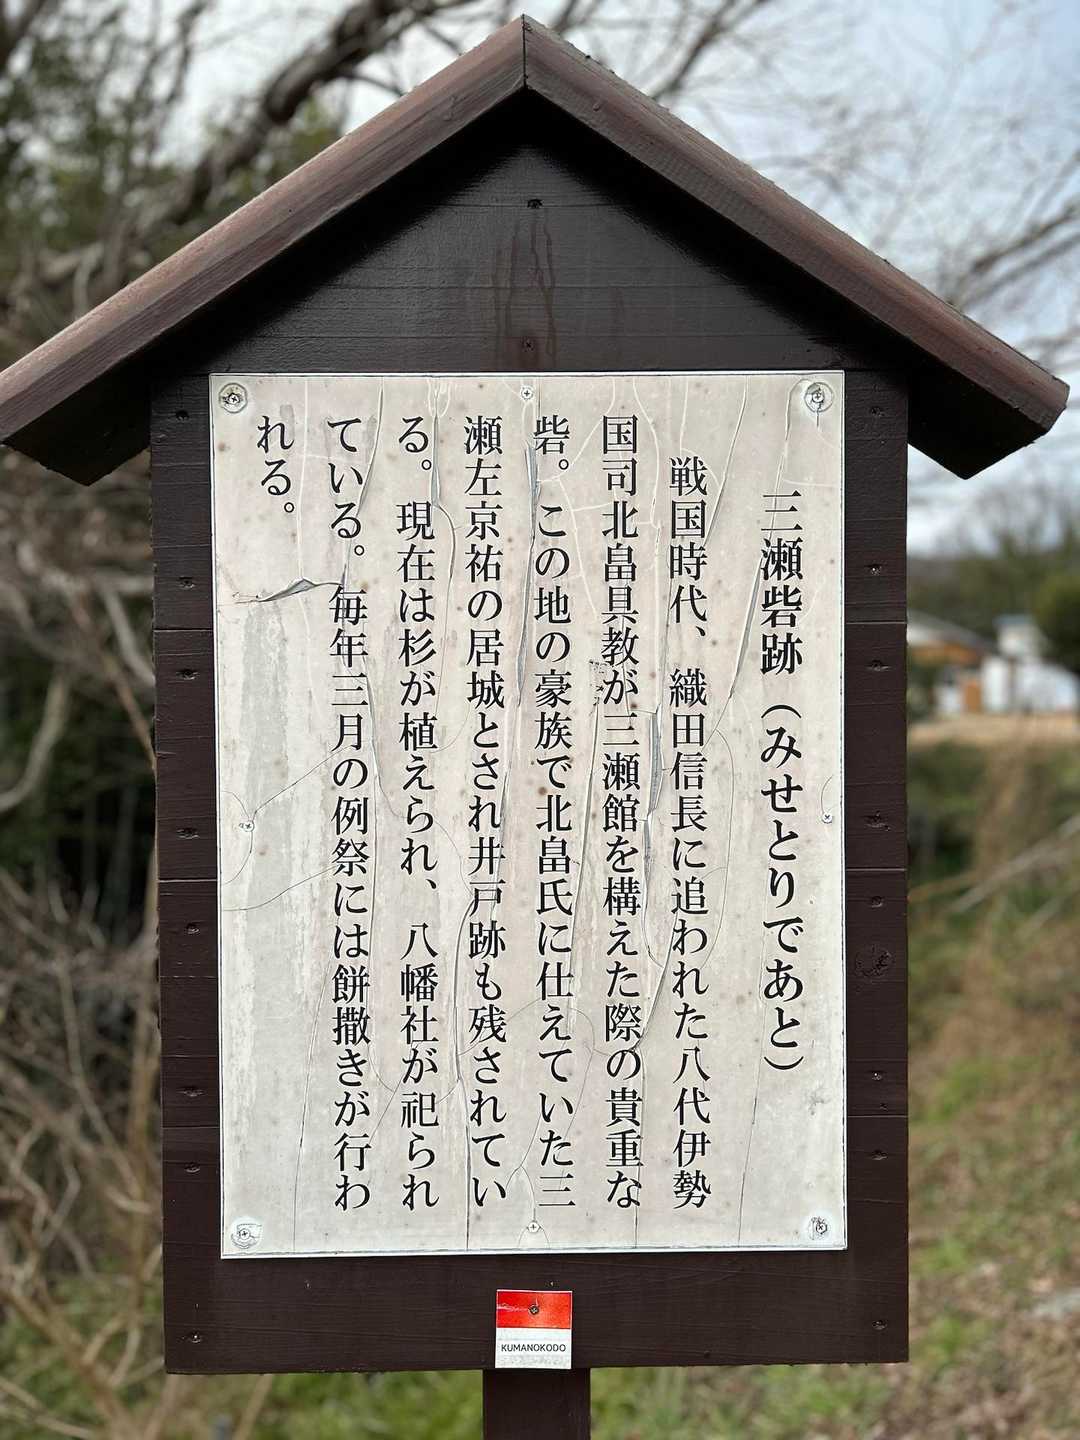 三瀬砦跡（みせとりであと）
戦国時代、織田信長に追われた八代伊勢
国司北畠具教が三瀬館を構えた際の貴重な
砦。この地の豪族で北畠氏に仕えていた三
瀬左京祐の居城とされ井戸跡も残されてい
る。現在は杉が植えられ、八幡社が祀られ
ている。毎年三月の例祭には餅撒きが行わ
れる。
KUMANOKODO